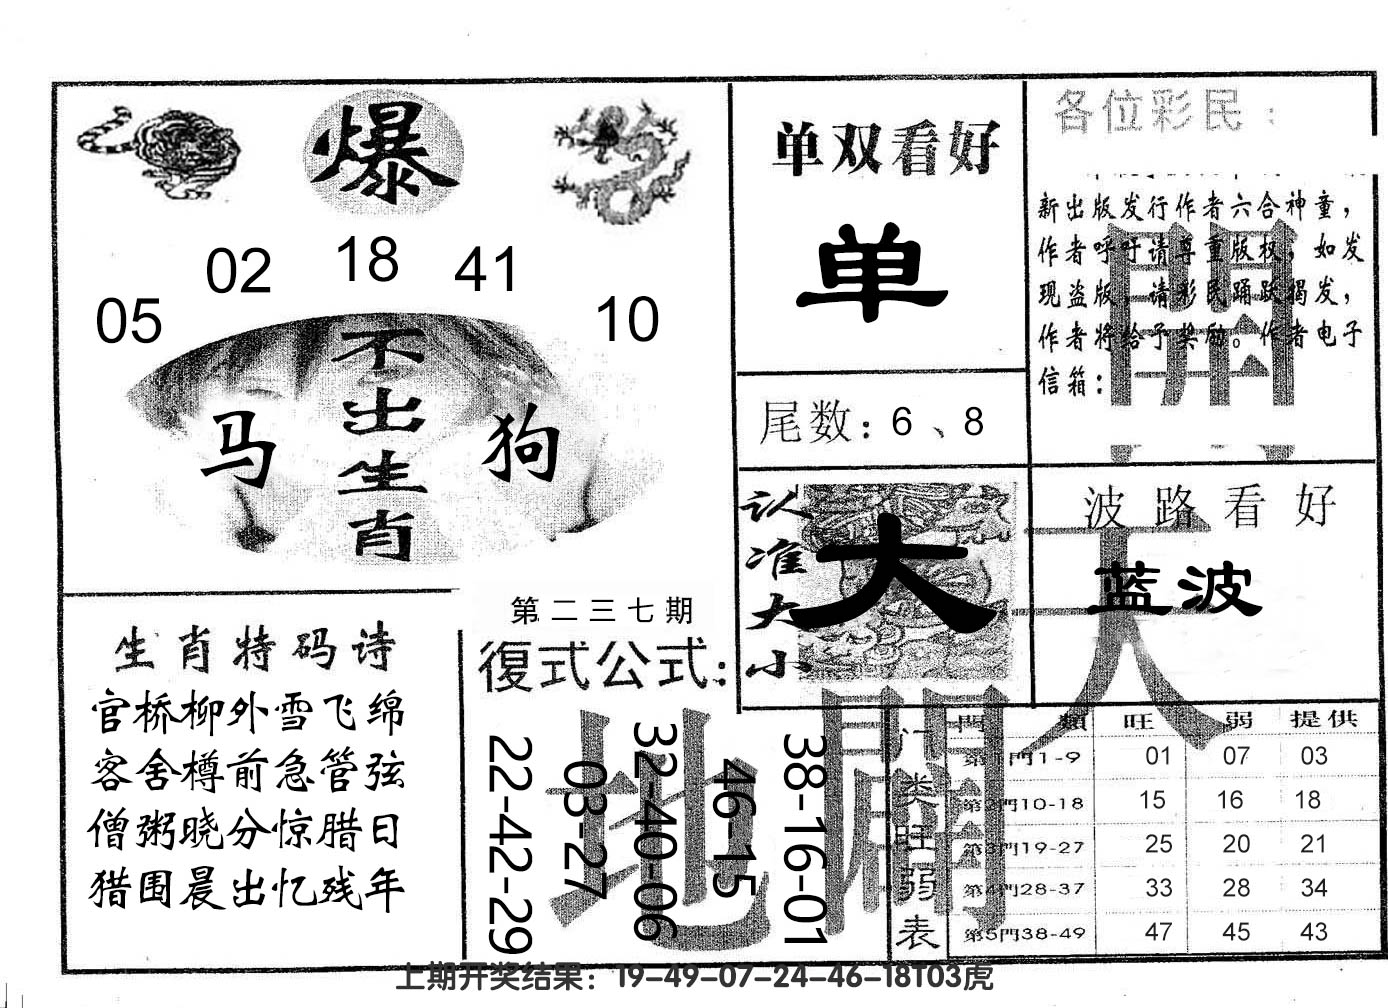 爆
02 18 41
05 10
不出生肖
马 狗
单双看好
单
尾数：6、8
各位彩民：
新出版发行作者六合神童，
作者呼吁请尊重版权，如发
现盗版，请彩民踊跃揭发，
作者将给予奖励。作者电子
信箱：
認准大小
大
波路看好
蓝波
天
開
地
閘
生肖特码诗
官桥柳外雪飞绵
客舍樽前急管弦
僧粥晓分惊腊日
猎围晨出忆残年
第二三七期
復式公式：
22-42-29
03-27
32-40-06
46-15
38-16-01
门类旺弱表
門類 旺 弱 提供
第1門1-9 01 07 03
第2門10-18 15 16 18
第3門19-27 25 20 21
第4門28-37 33 28 34
第5門38-49 47 45 43
上期开奖结果：19-49-07-24-46-18T03虎